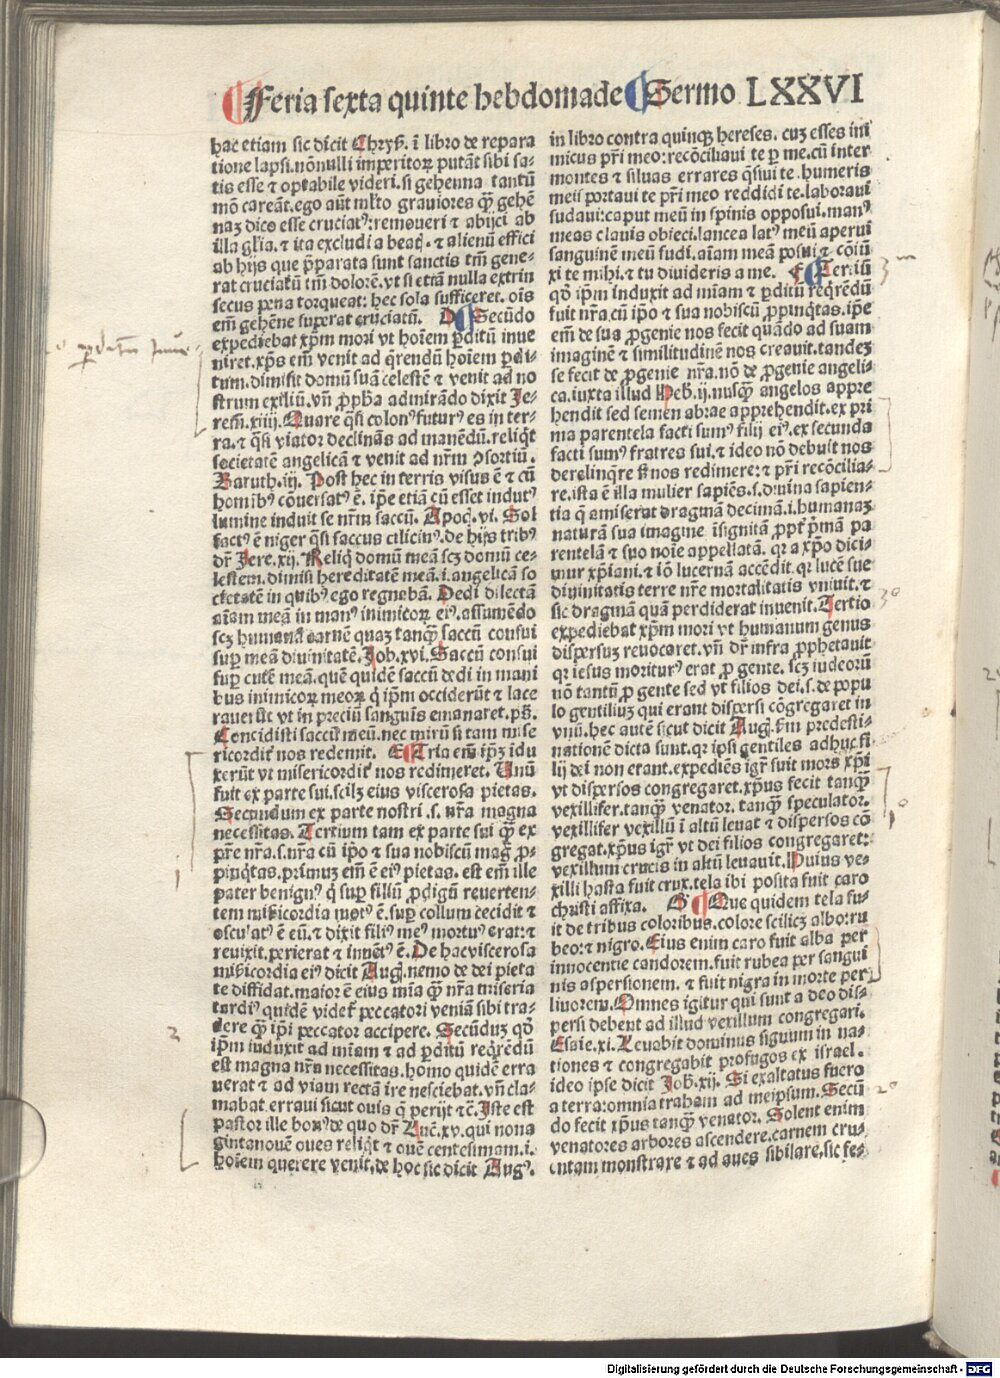 ¶ Feria sexta quinte hebdomade ¶ Sermo LXXVI
hac etiam sic dicit Chryſ. ī libro de repara
tione lapſi. nōnulli imperitoꝝ putāt sibi sa⸗
tis esse ⁊ optabile videri. si gehenna tantū
mō careāt. ego aūt mℓto grauiores qꝫ̄ gehē
naꝫ dico esse cruciatꝰ: remoueri ⁊ abijci ab
illa glīa. ⁊ ita excludi a beaq̄. ⁊ alienū effici
ab hijs que p̄parata sunt sanctis tm̄ gene⸗
rat cruciatū tm̄ dolorē. vt si etiā nulla extrin
secus pena torqueat: hec sola sufficeret. oīs
em̄ gehēne superat cruciatū. D ¶ Secūdo
expediebat xp̄m mori vt hoīem ꝑditū inue
niret. xp̄s em̄ venit ad q̄rendū hoīem ꝑdi⸗
tum. dimisit domū suā celestē ⁊ venit ad no
strum exiliū. vn̄ ꝓph̄a admirādo dixit Je⸗
rem̄. xiiij. Quare q̄si colonꝰ futurꝰ es in ter⸗
ra. ⁊ q̄si viator declinās ad manēdū. reliq̄t
societatē angelicā ⁊ venit ad nr̄m ꝯsortiū.
Baruth. iij. Post hec in terris visus ē ⁊ cū
homībꝰ cōuersatꝰ ē. ip̄e etiā cū esset indutꝰ
lumine induit se nr̄m saccū. Apoc̄. vi. Sol
factꝰ ē niger q̄si saccus cilicinꝰ. de hijs tribꝰ
dr̄ Jere. xij. Reliq̄ domū meā scꝫ domū ce⸗
lestem. dimisi hereditatē meā. i. angelicā so
cietatē in quibꝰ ego regnabā. Dedi dilectā
aīam meā in manꝰ inimicoꝝ eiꝰ. assumēdo
scꝫ humanā carnē quaꝫ tanqꝫ̄ saccū consui
suꝑ meā diuinitatē. Job. xvi. Saccū consui
suꝑ cutē meā. quē quidē saccū dedi in mani
bus inimicoꝝ meoꝝ q̇ ip̄m occiderūt ⁊ lace
rauerūt vt in preciū sanguis emanaret. ps̄.
Concidisti saccū meū. nec mirū si tam mise
ricordit̓ nos redemit. E ¶ Tria em̄ ip̄ꝫ idu
xerūt vt misericordit̓ nos redimeret. Unū
fuit ex parte sui. scilꝫ eius viscerosa pietas.
Secundum ex parte nostri. s. nr̄a magna
necessitas. Tertium tam ex parte sui qꝫ̄ ex
p̄re nr̄a. s. nr̄a cū ip̄o ⁊ sua nobiscū mag̓ ꝓ⸗
pinq̄tas. primuꝫ em̄ ē eiꝰ pietas. est em̄ ille
pater benignꝰ q̇ suꝑ filiū ꝓdigū reuerten⸗
tem mīsicordia motꝰ ē. suꝑ collum cecidit ⁊
osculatꝰ ē eū. ⁊ dixit filiꝰ meꝰ mortuꝰ erat: ⁊
reuixit. perierat ⁊ inuētꝰ ē. De hac viscerosa
mīsicordia eiꝰ dicit Augꝰ. nemo de dei pieta
te diffidat. maior ē eius mīa qꝫ̄ nr̄a miseria
tardiꝰ quidē videt̓ peccatori veniā sibi tra⸗
dere qꝫ̄ ip̄i peccator accipere. Secūduꝫ qd̄
ip̄m induxit ad mīam ⁊ ad ꝑditū req̄rēdū
est magna nr̄a necessitas. homo quidē erra
uerat ⁊ ad viam rectā ire nesciebat. vn̄ cla⸗
mabat. erraui sicut ouis q̄ perijt ⁊c̄. Iste est
pastor ille bonꝰ de quo dr̄ Luc̄. xv. qui nona
gintanouē oues reliq̄t ⁊ ouē centesimam. i.
hoīem querere venit. de hoc sic dicit Augꝰ.
in libro contra quinqꝫ hereses. cuꝫ esses ini
micus pr̄i meo: recōciliaui te ꝑ me. cū inter
montes ⁊ siluas errares q̄siui te. humeris
meis portaui te pr̄i meo reddidi te. laboraui
sudaui: caput meū in spinis opposui. manꝰ
meas clauis obieci. lancea latꝰ meū aperui
sanguinē meū fudi. aīam meā posui ⁊ cōiū
xi te mihi. ⁊ tu diuideris a me. F ¶ Tertiū
qd̄ ip̄m induxit ad mīam ⁊ ꝑditū req̄rēdū
fuit nr̄a. cū ip̄o ⁊ sua nobiscū ꝓpinq̄tas. ip̄e
em̄ de sua ꝓgenie nos fecit quādo ad suam
imaginē ⁊ similitudinē nos creauit. tandeꝫ
se fecit de ꝓgenie nr̄a. nō de ꝓgenie angeli⸗
ca. iuxta illud Heb̄. ij. nusqꝫ̄ angelos appre
hendit sed semen abrae apprehendit. ex pri
ma parentela facti sumꝰ filij eiꝰ. ex secunda
facti sumꝰ fratres sui. ⁊ ideo nō debuit nos
derelinq̄re sꝫ nos redimere: ⁊ pr̄i recōcilia⸗
re. ista ē illa mulier sapiēs. s. diuina sapien⸗
tia q̄ amiserat dragmā decimā. i. humanaꝫ
naturā sua imagine īsignitā ꝓpt̓ p̄mā pa
rentelā ⁊ suo noīe appellatā. qr a xp̄o dici⸗
mur xp̄iani. ⁊ iō lucernā accēdit. qr lucē sue
diuinitatis terre nr̄e mortalitatis vniuit. ⁊
sic dragmā quā perdiderat inuenit. Tertio
expediebat xp̄m mori vt humanum genus
dispersuꝫ reuocaret. vn̄ dr̄ infra ꝓphetauit
qr iesus moriturꝰ erat ꝓ gente. scꝫ iudeorū
nō tantū ꝓ gente sed vt filios dei. s. de popu
lo gentiliuꝫ qui erant dispersi cōgregaret in
vnū. hec autē sicut dicit Augꝰ. fm̄ predesti⸗
nationē dicta sunt. qr ipsi gentiles adhuc fi
lij dei non erant. expediēs igr̄ fuit mors xp̄i
vt dispersos congregaret. xp̄us fecit tanqꝫ̄
vexillifer. tanqꝫ̄ venator. tanqꝫ̄ speculator.
vexillifer vexillū ī altū leuat ⁊ dispersos cō
gregat. xp̄us igr̄ vt dei filios congregaret:
vexillum crucis in altū leuauit. Huius ve⸗
xilli hasta fuit crux. tela ibi posita fuit caro
christi affixa. G ¶ Que quidem tela fu⸗
it de tribus coloribus. colore scilicꝫ albo: ru
beo: ⁊ nigro. Eius enim caro fuit alba per
innocentie candorem. fuit rubea per sangui
nis aspersionem. ⁊ fuit nigra in morte per
liuorem. Omnes igitur qui sunt a deo dis⸗
persi debent ad illud vexillum congregari.
Esaie. xi. Leuabit dominus signum in na⸗
tiones ⁊ congregabit profugos ex israel.
ideo ipse dicit Joh. xij. Si exaltatus fuero
a terra: omnia traham ad meipsum. Secū
do fecit xp̄us tanqꝫ̄ venator. Solent enim
venatores arbores ascendere. carnem cru⸗
entam monstrare ⁊ ad aues sibilare. sic fe⸗
Digitalisierung gefördert durch die Deutsche Forschungsgemeinschaft - DFG